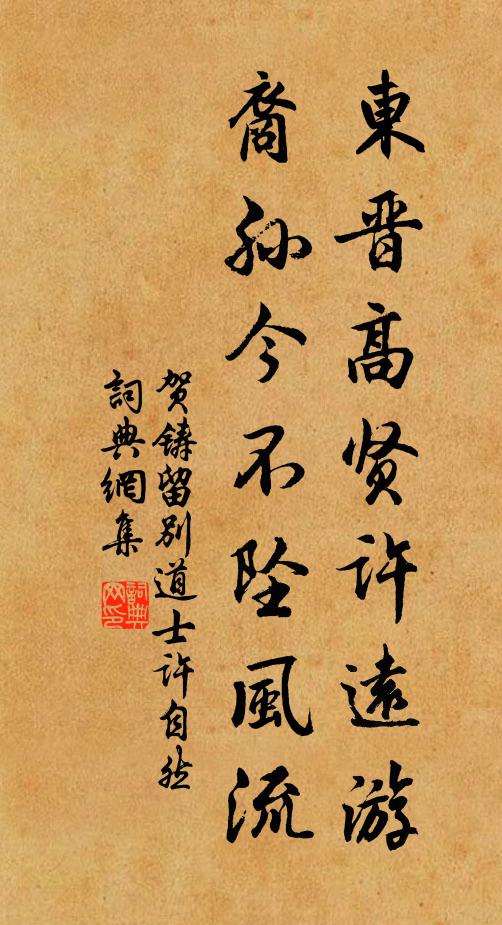 東晋高贤許遠游
裔孙今不坠風流
贺鑄留别道士許自然
詞典網集
詞典網印